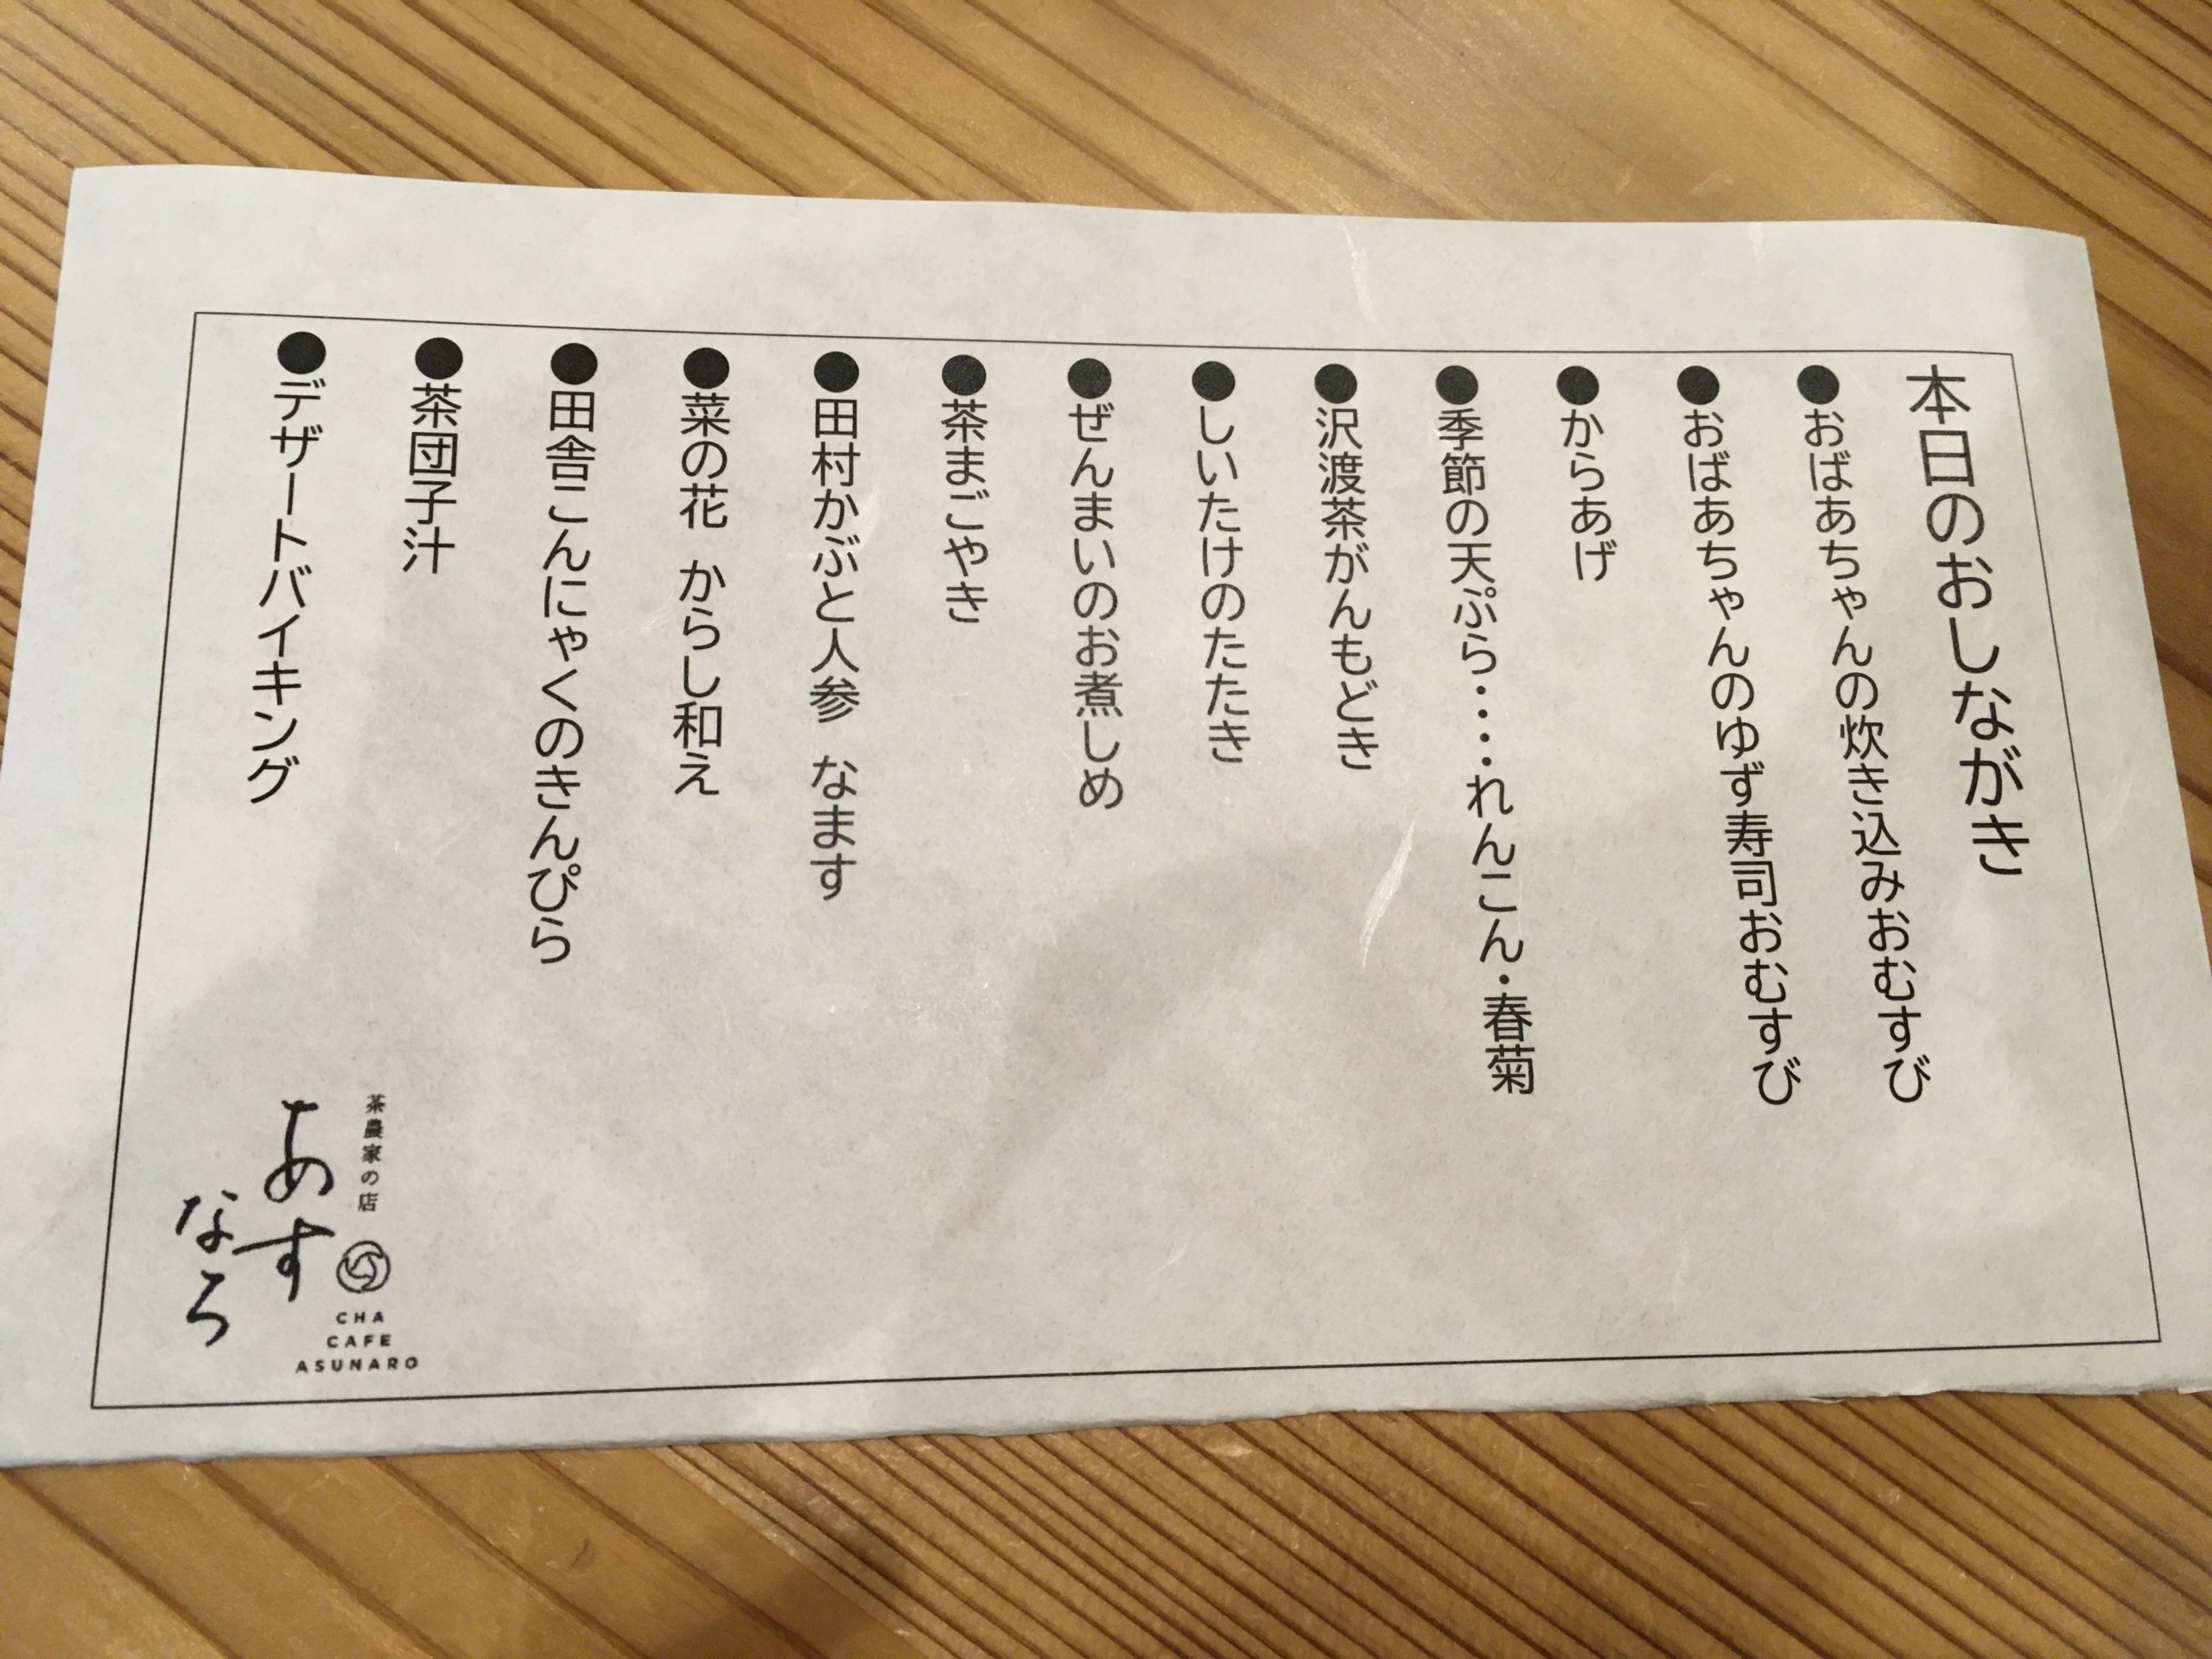 本日のおしながき
●おばあちゃんの炊き込みおむすび
●おばあちゃんのゆず寿司おむすび
●からあげ
●季節の天ぷら・・・・れんこん・春菊
●沢渡茶がんもどき
●しいたけのたたき
●ぜんまいのお煮しめ
●茶まごやき
●田村かぶと人参 なます
●菜の花 からし和え
●田舎こんにゃくのきんぴら
●茶団子汁
●デザートバイキング
茶農家の店
あすなろ
CHA
CAFE
ASUNARO